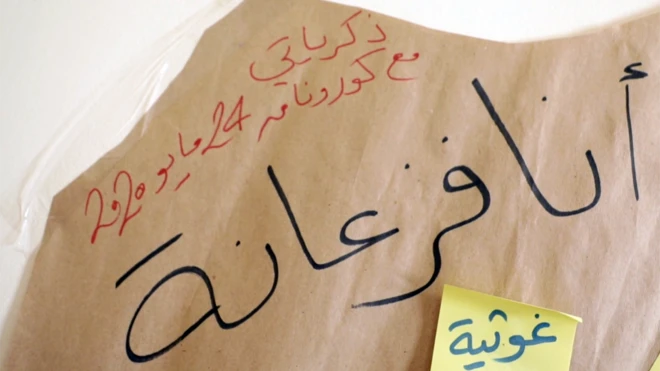 ذكرياتي
مع كورونا في 24 مايو 2020
أنا فزعانة
غوثية